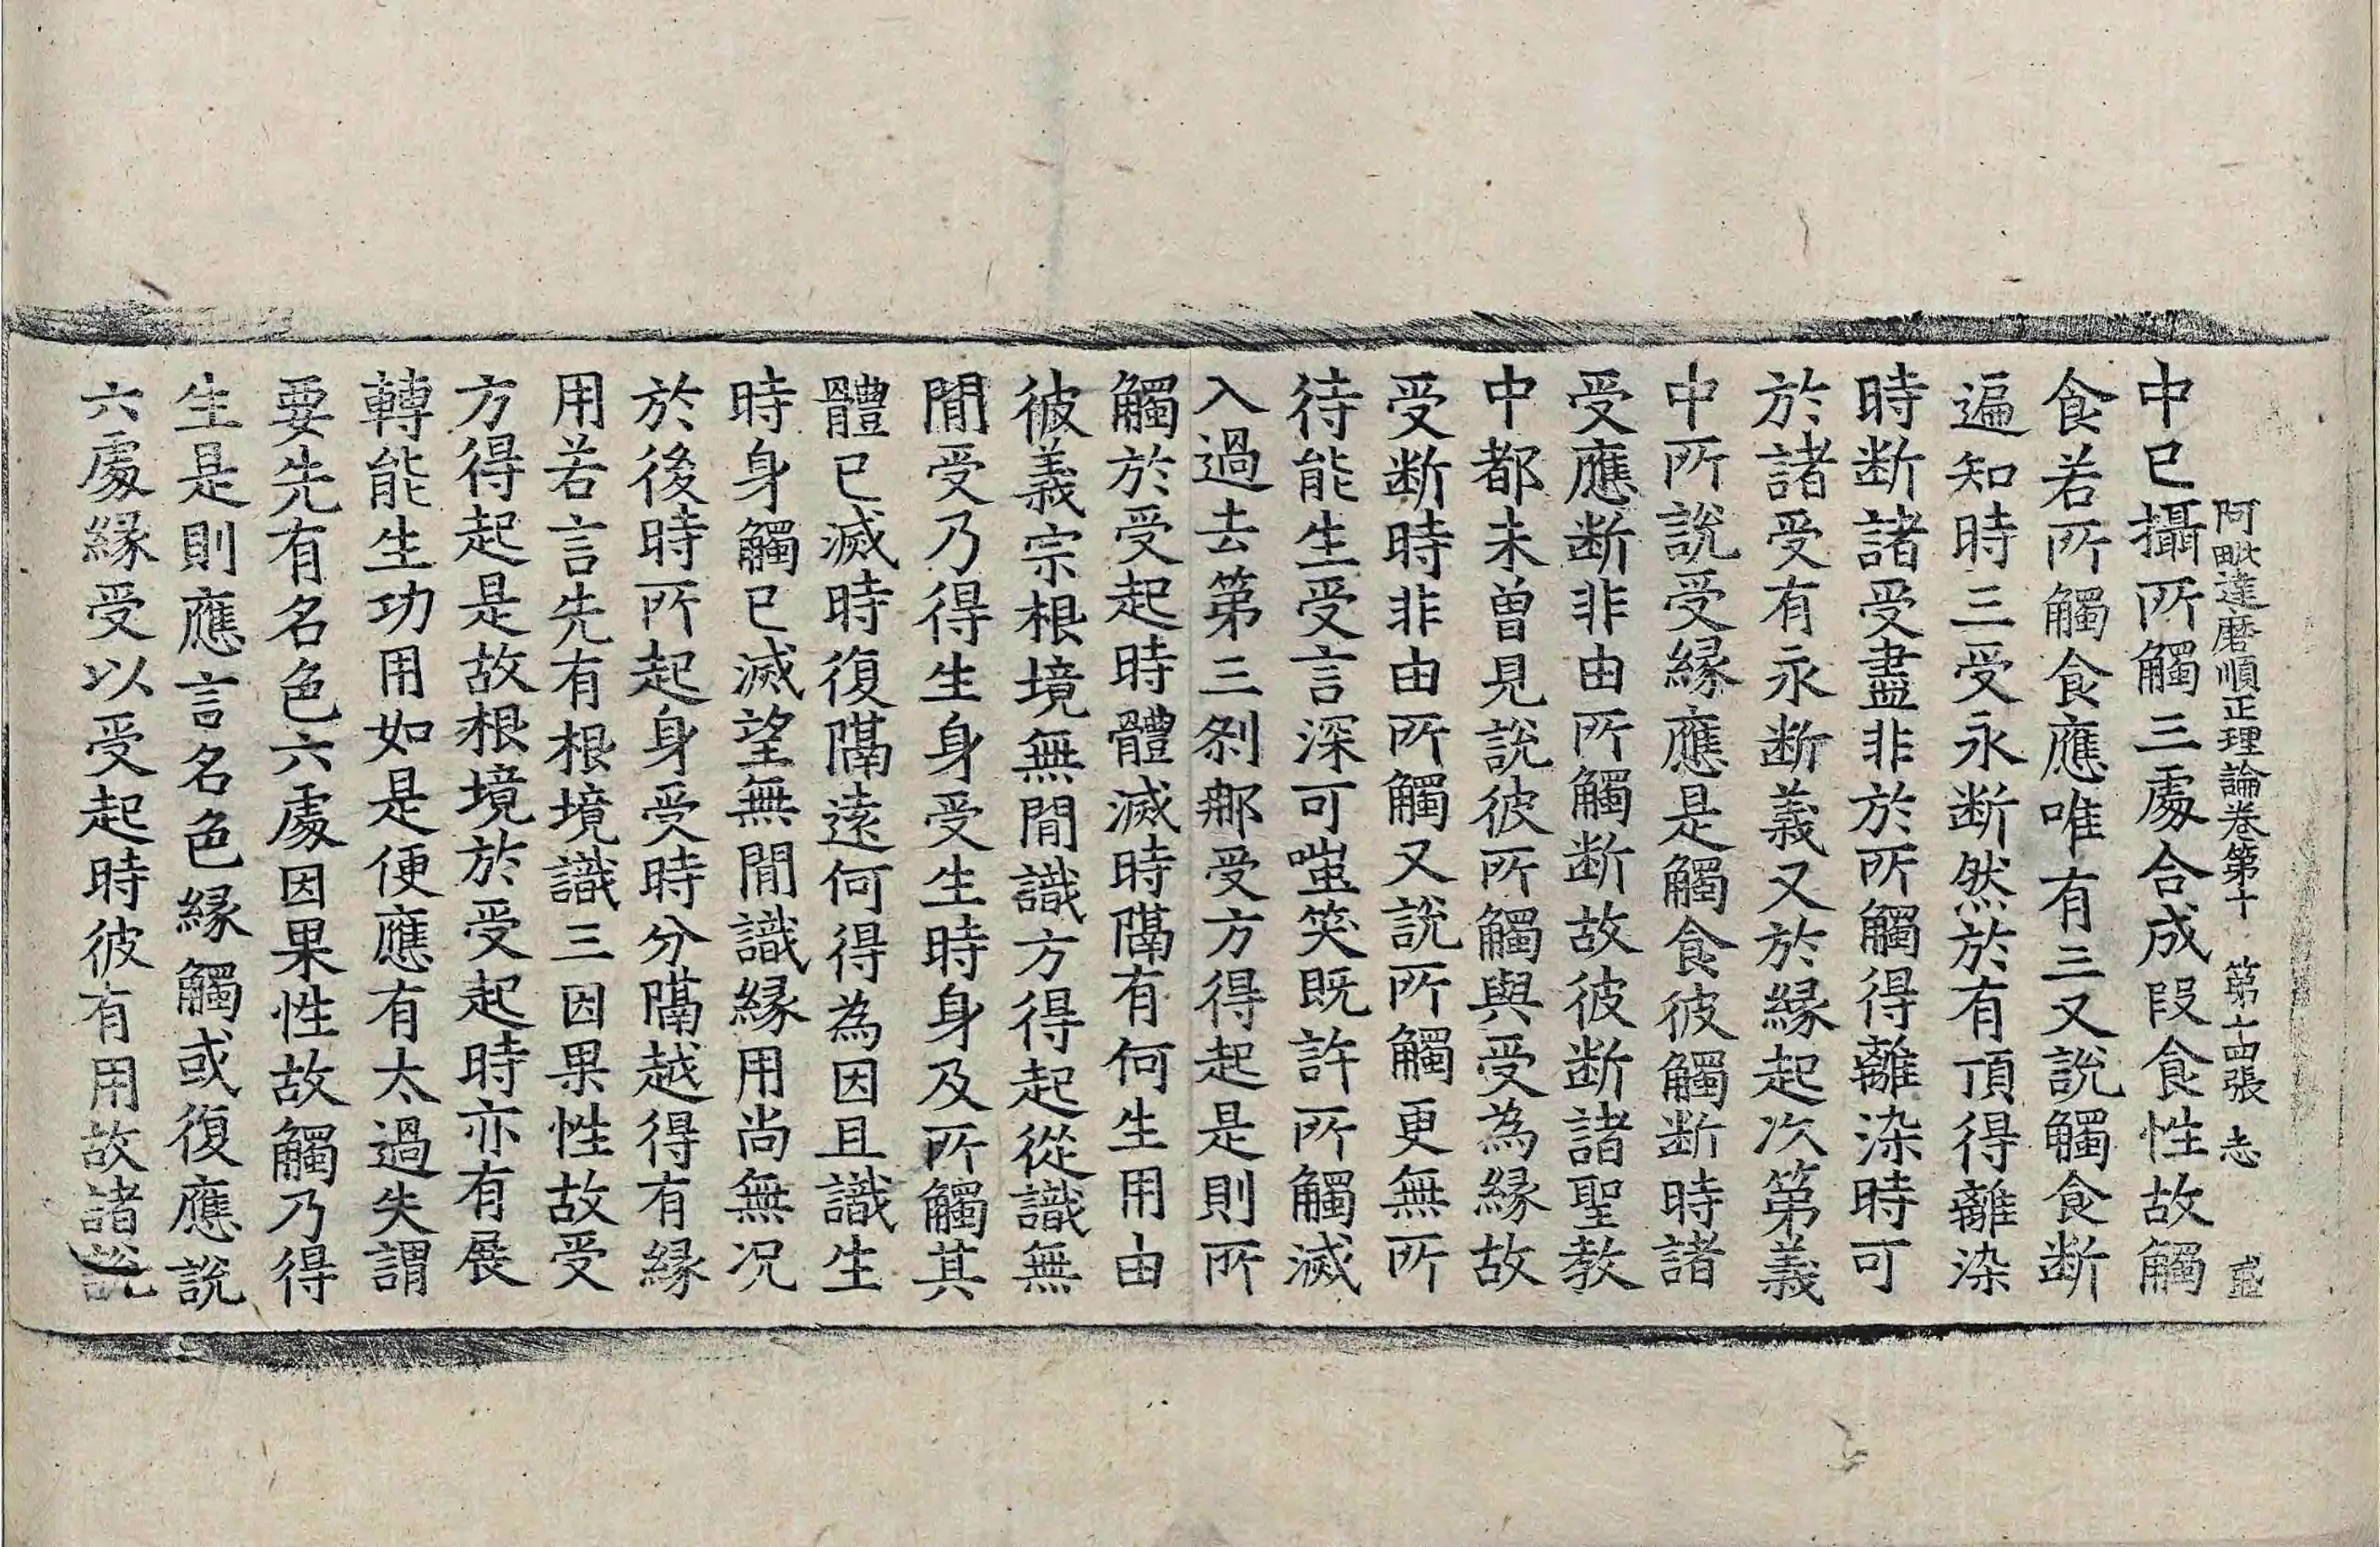 阿毗達磨順正理論卷第十　第十四張　志　盛
中已攝所觸三處合成段食性故觸
食若所觸食應唯有三又說觸食断
遍知時三受永断然於有頂得離染
時断諸受盡非於所觸得離染時可
於諸受有永断義又於緣起次第義
中所說受緣應是觸食彼觸断時諸
受應断非由所觸断故彼断諸聖教
中都未曾見說彼所觸與受為緣故
受断時非由所觸又說所觸更無所
待能生受言深可嗤笑既許所觸滅
入過去第三剎那受方得起是則所
觸於受起時體滅時隔有何生用由
彼義宗根境無間識方得起從識無
間受乃得生身受生時身及所觸其
體已滅時復隔遠何得為因且識生
時身觸已滅望無間識緣用尚無况
於後時所起身受時分隔越得有緣
用若言先有根境識三因果性故受
方得起是故根境於受起時亦有展
轉能生功用如是便應有太過失謂
要先有名色六處因果性故觸乃得
生是則應言名色緣觸或復應說
六處緣受以受起時彼有用故諸說